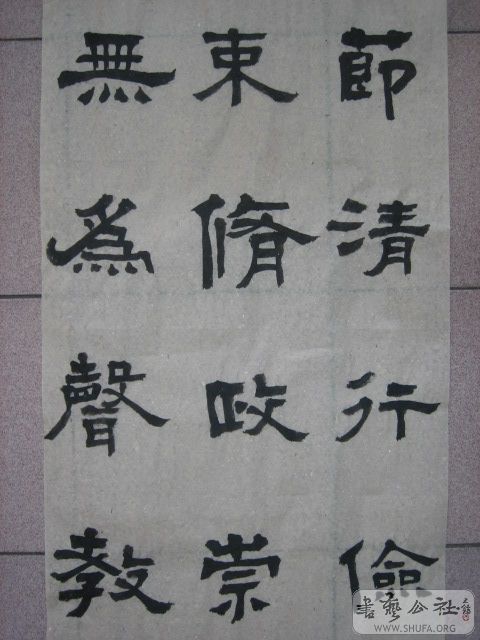 節清行儉
束脩政崇
無為聲教
書藝公社
WWW.SHUFA.ORG